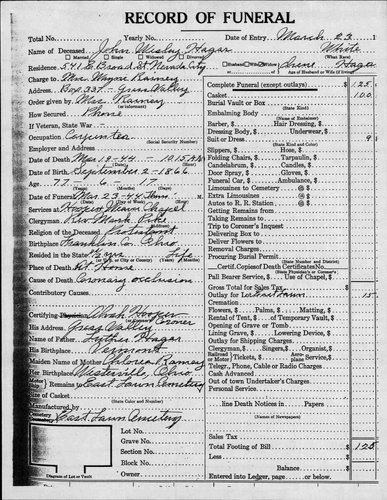 RECORD OF FUNERAL
Total No. Yearly No. Date of Entry March 23 1
Name of Deceased John Wesley Hagar White
Married Single Widowed Divorced (What Race)
Residence 541 E Broad St Nevada City Husband Wife Widow of Irene Hagar
Charge to Mrs Wayne Ramey Age of Husband or Wife (if living)
Address Box 337 - Grass Valley
Order given by Mrs Ramey
or informant
How Secured Phone
If Veteran, State War
Occupation Carpenter
(Social Security Number)
Employer and Address
Date of Death Mar 19-44 - 10:15 AM
Date of Birth September 2-1866
Age 77 6 17
(Years) (Months) (Days)
Date of Funeral Mar 23-44
Services at Hooper Weaver Chapel
Clergyman Rev Mark Pike
Religion of the Deceased Protestant
Birthplace Franklin Co Ohio
Resided in the State Life
Place of Death At Home
Cause of Death Coronary occlusion
Contributory Causes
Certifying Physician Alvah Hooper
Coroner
His Address Grass Valley
Name of Father Luther Hagar
His Birthplace Vermont
Maiden Name of Mother Ramey
Her Birthplace Westerville, Ohio
Remains to East Lawn Cemetery
Size of Casket
(State Color and Number)
Manufactured by
East Lawn Cemetery
Lot No.
Grave No.
Section No.
Block No.
Owner
Diagram of Lot or Vault
Complete Funeral (except outlays) $ 125
Casket 100
Burial Vault or Box
(State Kind)
Embalming Body
(Name of Embalmer)
Barber, $ Hair Dressing, $
Dressing Body, $ Underwear, $
Suit or Dress 9
(State Kind and Color)
Slippers, $ Hose, $
Folding Chairs, $ Tarpaulin, $
Candelabrum, $ Candles, $
Door Spray, $ Gloves, $
Funeral Car, $ Ambulance, $
Limousines to Cemetery @ $
Extra Limousines @ $
Autos to R. R. Station @ $
Getting Remains from
Taking Remains to
Trip to Coroner's Inquest
Delivering Box to
Deliver Flowers to
Removal Charges
Procuring Burial Permit
(State Number and District)
Certif. Copies of Death Certificate No.
(State Physician's or Coroner's)
Pall Bearer Service, $ Use of Chapel, $
Gross Total for Sales Tax $
Outlay for Lot East Lawn 15
Cremation
Flowers, $ Palms, $ Matting, $
Rental of Tent, $ of Temporary Vault, $
Opening of Grave or Tomb
Lining Grave, $ Lowering Device, $
Outlay for Shipping Charges
Clergyman, $ Singers, $ Organist, $
Railroad or Motor Tickets, $ Aeroplane Service, $
Teleg., Phone, Cable or Radio Charges
Cash Advanced
Out of town Undertaker's Charges
Personal Service
line Death Notices in Papers
(Names of Newspapers)
Sales Tax
Total Footing of Bill $ 125
Less $
Balance $
Entered into Ledger, page or below.